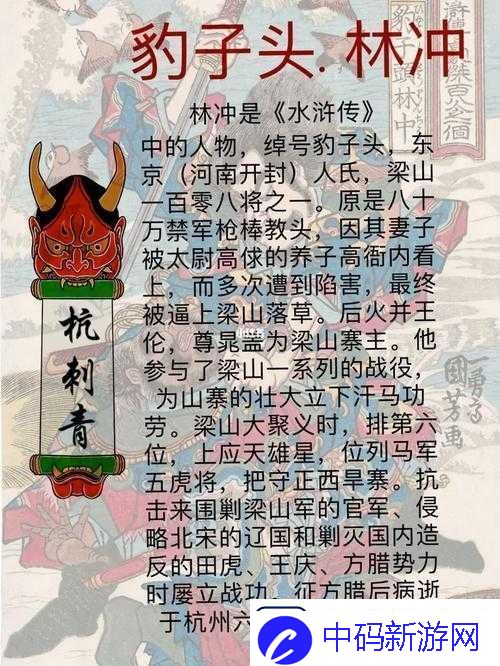 豹子头.林冲
林冲是《水浒传》
中的人物，绰号豹子头，东
京（河南开封）人氏，梁山
一百零八将之一。原是八十
万禁军枪棒教头，因其妻子
被太尉高俅的养子高衙内看
上，而多次遭到陷害，最终
被逼上梁山落草。后火并王
伦，尊晁盖为梁山寨主。他
参与了梁山一系列的战役，
为山寨的壮大立下汗马功
劳。梁山大聚义时，排第六
位，上应天雄星，位列马军
五虎将，把守正西旱寨。抗
击来围剿梁山军的官军、侵
略北宋的辽国和剿灭国内造
反的田虎、王庆、方腊势力
时屡立战功。征方腊后病逝
于杭州六
杭刺青
豹子頭林冲
一勇斎
国芳画
中码新游网